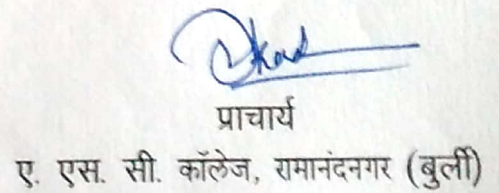 प्राचार्य
ए. एस. सी. कॉलेज, रामानंदनगर (बुर्ली)